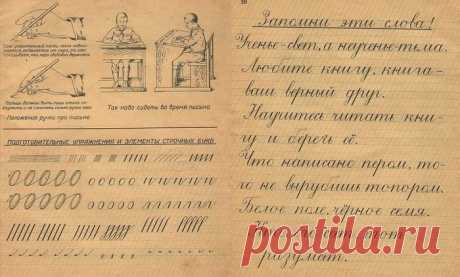 Так надо сидеть во время письма
Положение ручки при письме
ПОДГОТОВИТЕЛЬНЫЕ УПРАЖНЕНИЯ И ЭЛЕМЕНТЫ СТРОЧНЫХ БУКВ
Запомни эти слова!
Ученье-свет, а неученье-тьма.
Любите книгу, книга-
ваш верный друг.
Научитесь читать кни-
гу и беречь её.
Что написано пером, то-
го не вырубишь топором.
Белое поле, чёрное семя.
разумат.
postila.ru